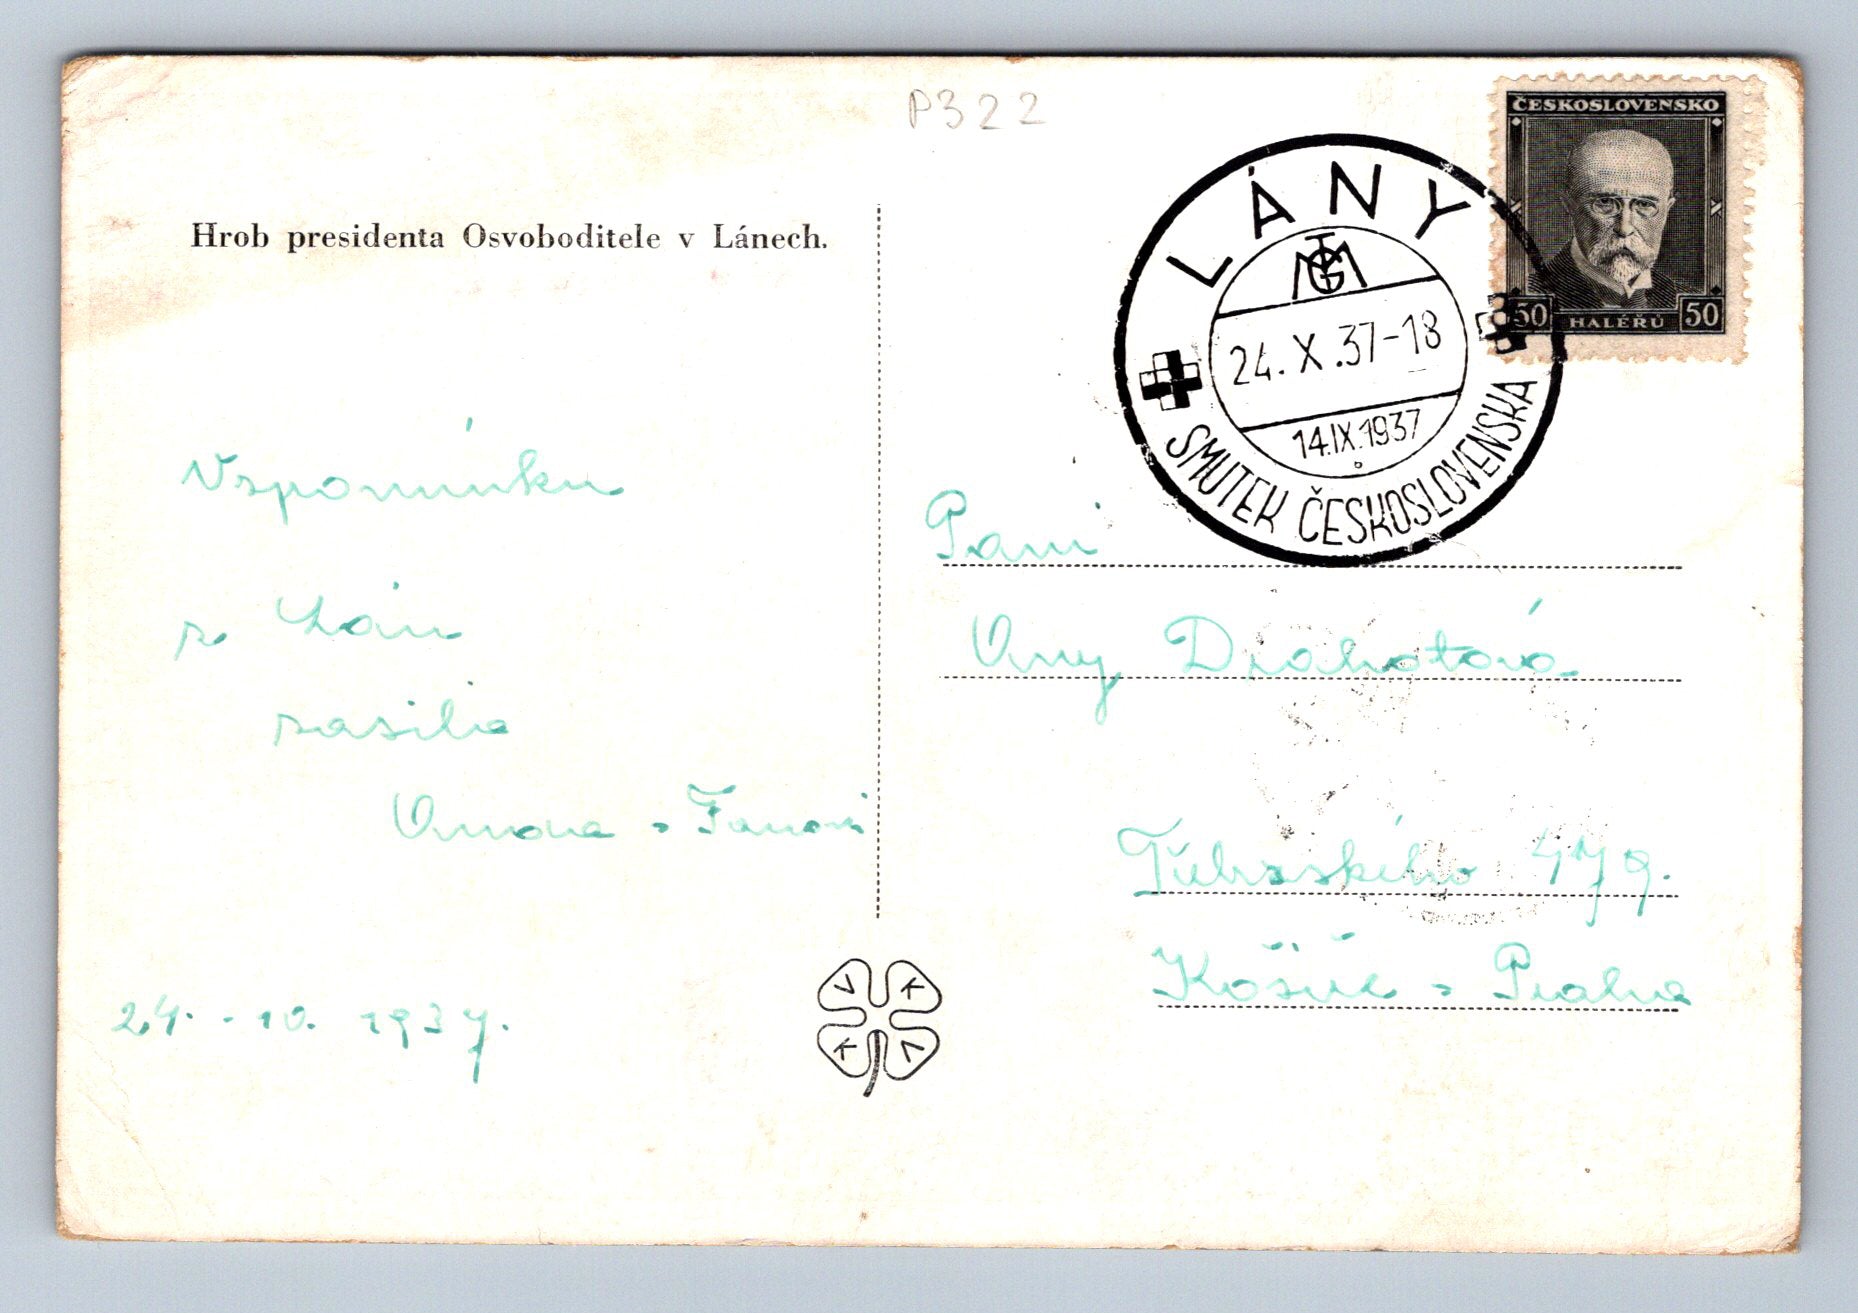 P322
Hrob presidenta Osvoboditele v Lánech.
ČESKOSLOVENSKO
50 HALÉŘŮ 50
LÁNY
TGM
24.X.37-18
14.IX.1937
SMUTEK ČESKOSLOVENSKA
Vzpomínku
z Lán
zasílá
24. - 10. 1937.
Paní
Any Drahotová
479.
Košíře - Praha
V K
K V